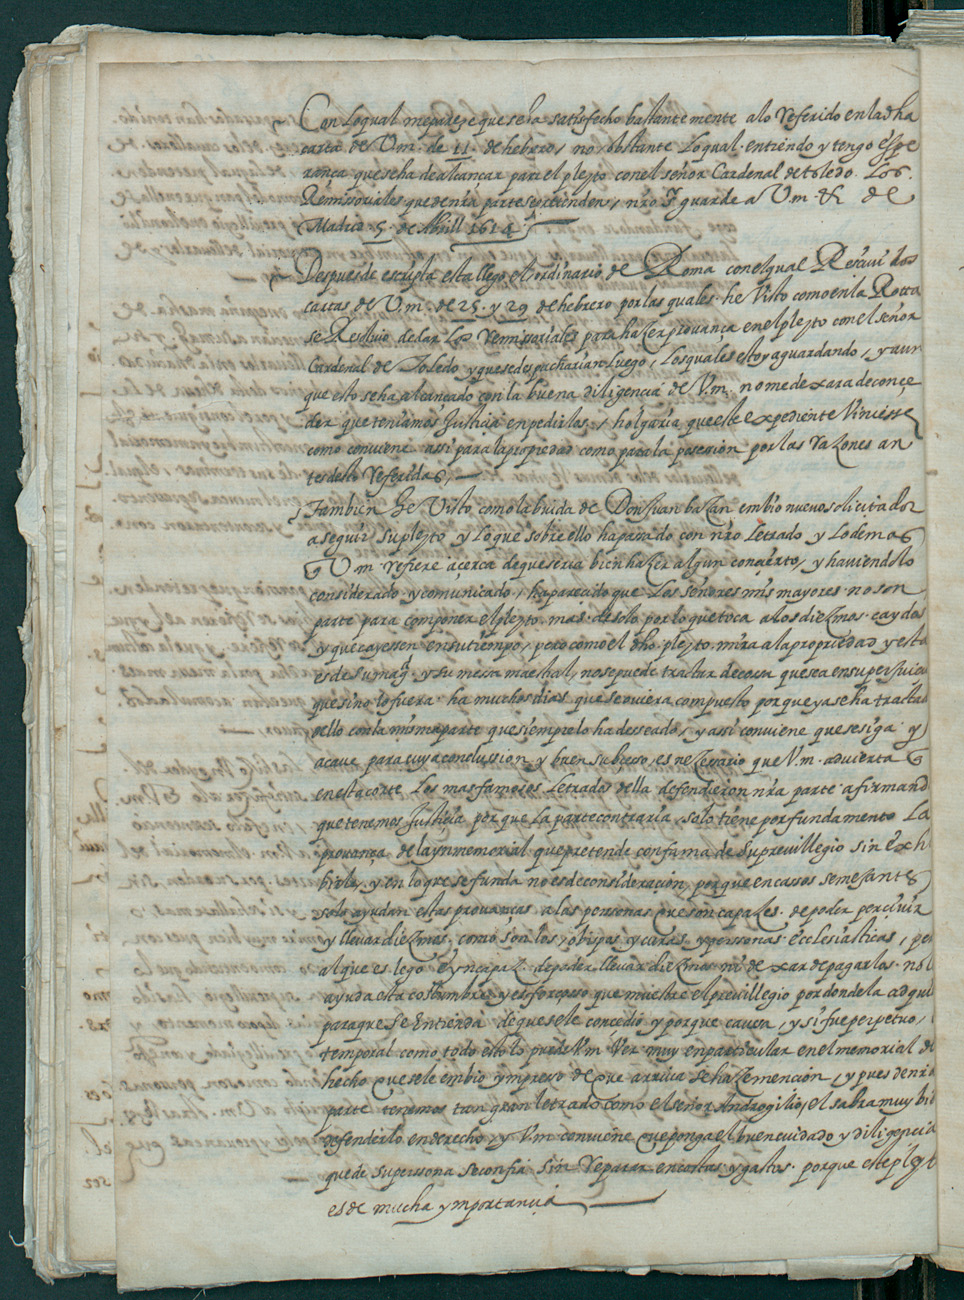 Con lo qual me pareze que sera satisfecho bastantemente a lo referido en la dha
carta de V.m. de 11. de hebrero, no obstante lo qual. entiendo y tengo espe
rança que se ha de alcançar para el pleyto con el señor Cardenal de toledo. Los.
Remisoriales que de nra parte se pretenden, nro Sr guarde a V.m. &. de
Madrid. 5. de Abrill 1614
Despues de escripta esta llego el ordinario de Roma con el qual Resçiui dos
cartas de V.m. de 25. y 29 de hebrero por las quales. he Visto como en la Rotta
se Resoluio de dar Los remisoriales para hazer provança en el pleyto con el señor
Cardenal de Toledo y que se despacharian luego, los quales estoy aguardando, y aun
que esto se ha alcançado con la buena diligencia de V.m. no me dexara de conçe
der que teniamos Justicia en pedirlas, holgaria que este expediente Viniesse
como conviene assi para la propiedad como para la posesion por las razones an
tes desto referidas,
Tambien he Visto como la buida de Don Juan bazan embio nuevo solicitador
a seguir su pleyto y lo que sobre ello ha pasado con nro Letrado y lo demas
q V.m. refiere açerca de que seria bien hazer algun conçierto, y haviendolo
considerado y comunicado, ha parecido que Los Señores mis mayores no son
parte para componer el pleyto. mas de solo por lo que toca a los diezmos. caydos
y que cayesen en su tiempo, pero como el dho. pleyto. mira a la propriedad y esta
es de su magd. y su mesa maestral, no se puede tractar de cosa que sea en su perjuicio
que si no lo fuera. ha muchos dias que se oviera compuesto porque ya se ha tractad
dello con la misma parte que siempre lo ha desseado, y assi conviene que se siga y
acave para cuya conclussion, y buen subceso, es neçesario que V.m. advierta q
en esta corte Los mas famosos Letrados della defendieron nra parte afirmand
que tenemos Justicia por que La parte contraria. solo tiene por fundamento La
provança de la ynmemorial que pretende con fama de su previllegio sin exh
birle, y en lo que se funda no es de consideracion, porque en cassos semejantes
solo ayudan estas provanças a las personas que son capazes. de poder percivir
y llevar diezmos. como son los, obispos y curas. y personas ecclesiasticas, pe
al que es lego e yncapaz de poder llevar diezmos ni dexar de pagarlos. no l
ayuda esta costumbre, y es forçoso que muestre el previllegio por donde la adqui
para que Se entienda de que se le concedio y por que causa, y si fue perpetuo,
temporal como todo esto lo puede V.m. Ver muy en particular en el memorial de
hecho que se le embio ympreso de que arriva se haze mençion, y pues de nra
parte tenemos tan gran letrado como el señor Androgilio, el sabra muy bi
defenderlo en derecho, y V.m. conviene que ponga el buen cuidado y diligencia
que de su persona se confia sin reparar en costas y gastos. porque este pleyt
es de mucha ymportançia